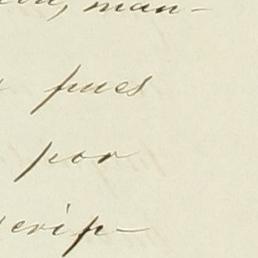 man-
pues
por
crip-